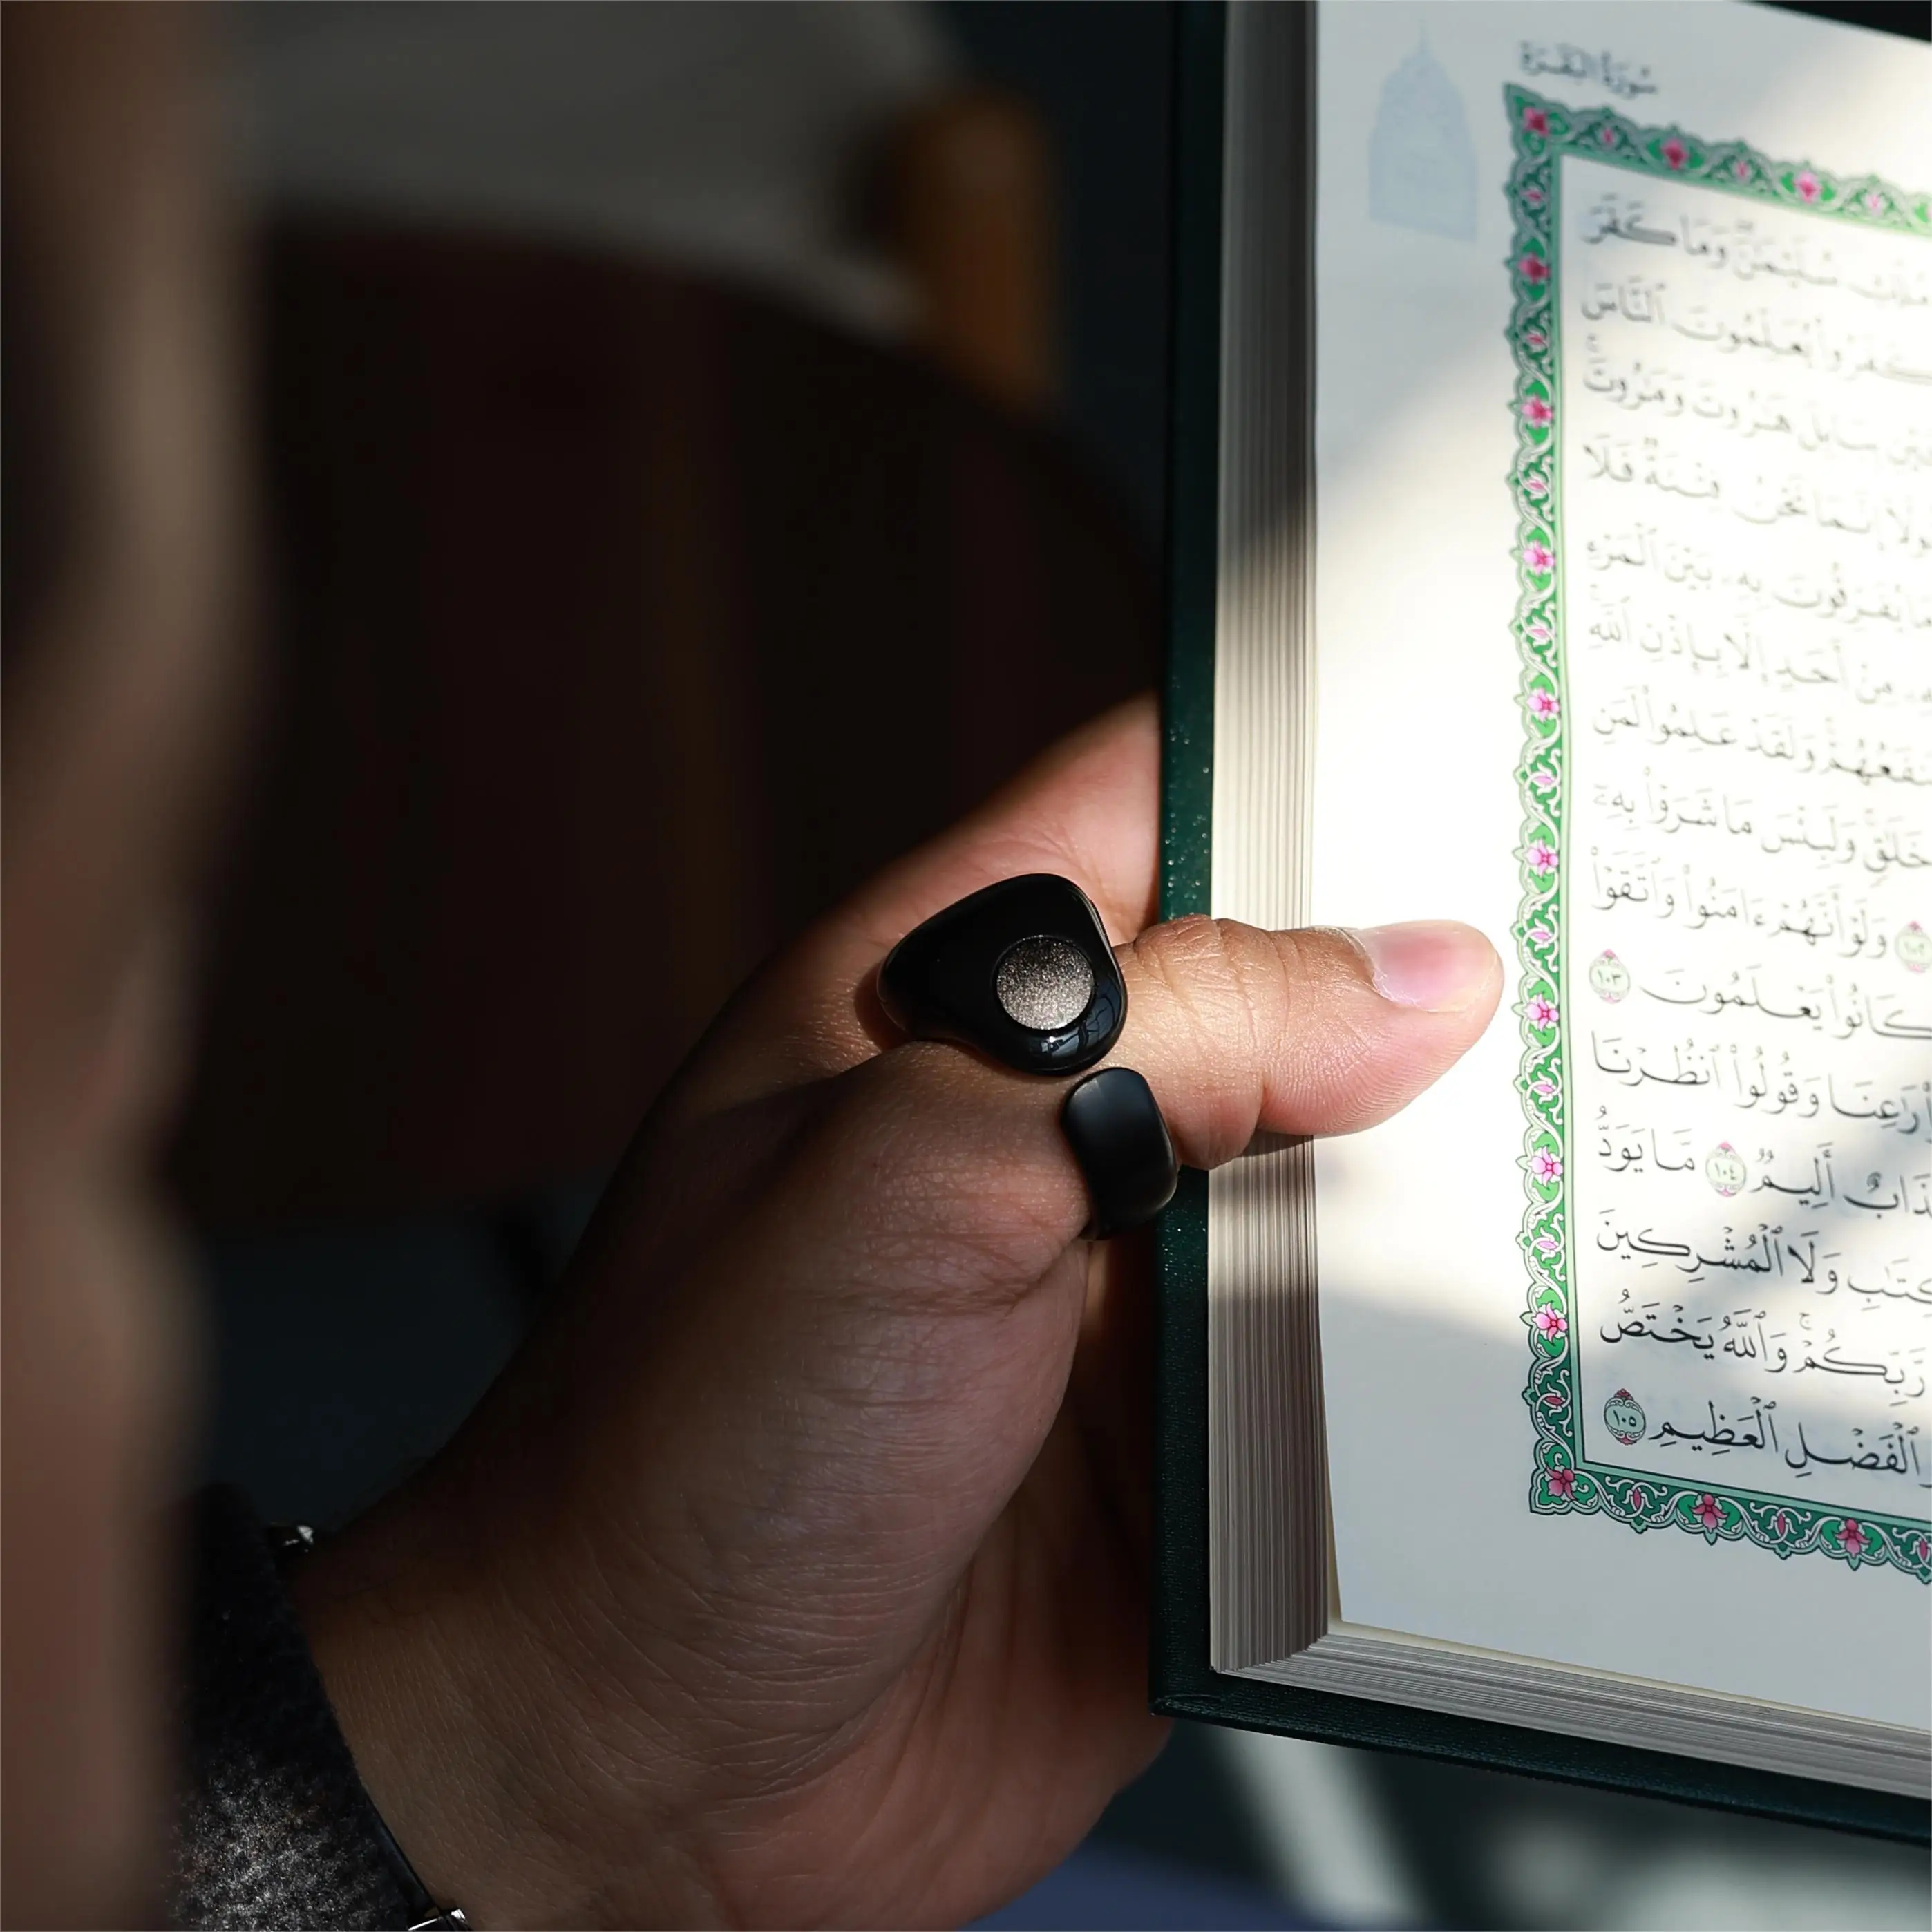 سُورَةُ البَقَرَةِ
سُلَيْمَٰنَ وَمَا كَفَرَ
كَفَرُوا۟ يُعَلِّمُونَ ٱلنَّاسَ
بِبَابِلَ هَٰرُوتَ وَمَٰرُوتَ
إِنَّمَا نَحْنُ فِتْنَةٌ فَلَا
مَا يُفَرِّقُونَ بِهِۦ بَيْنَ ٱلْمَرْءِ
مِنْ أَحَدٍ إِلَّا بِإِذْنِ ٱللَّهِ
يَنفَعُهُمْ وَلَقَدْ عَلِمُوا۟ لَمَنِ
خَلَٰقٍ وَلَبِئْسَ مَا شَرَوْا۟ بِهِۦٓ
١٠٢ وَلَوْ أَنَّهُمْ ءَامَنُوا۟ وَٱتَّقَوْا۟
كَانُوا۟ يَعْلَمُونَ ١٠٣
رَٰعِنَا وَقُولُوا۟ ٱنظُرْنَا
عَذَابٌ أَلِيمٌ ١٠٤ مَّا يَوَدُّ
وَلَا ٱلْمُشْرِكِينَ
رَّبِّكُمْ وَٱللَّهُ يَخْتَصُّ
ٱلْفَضْلِ ٱلْعَظِيمِ ١٠٥